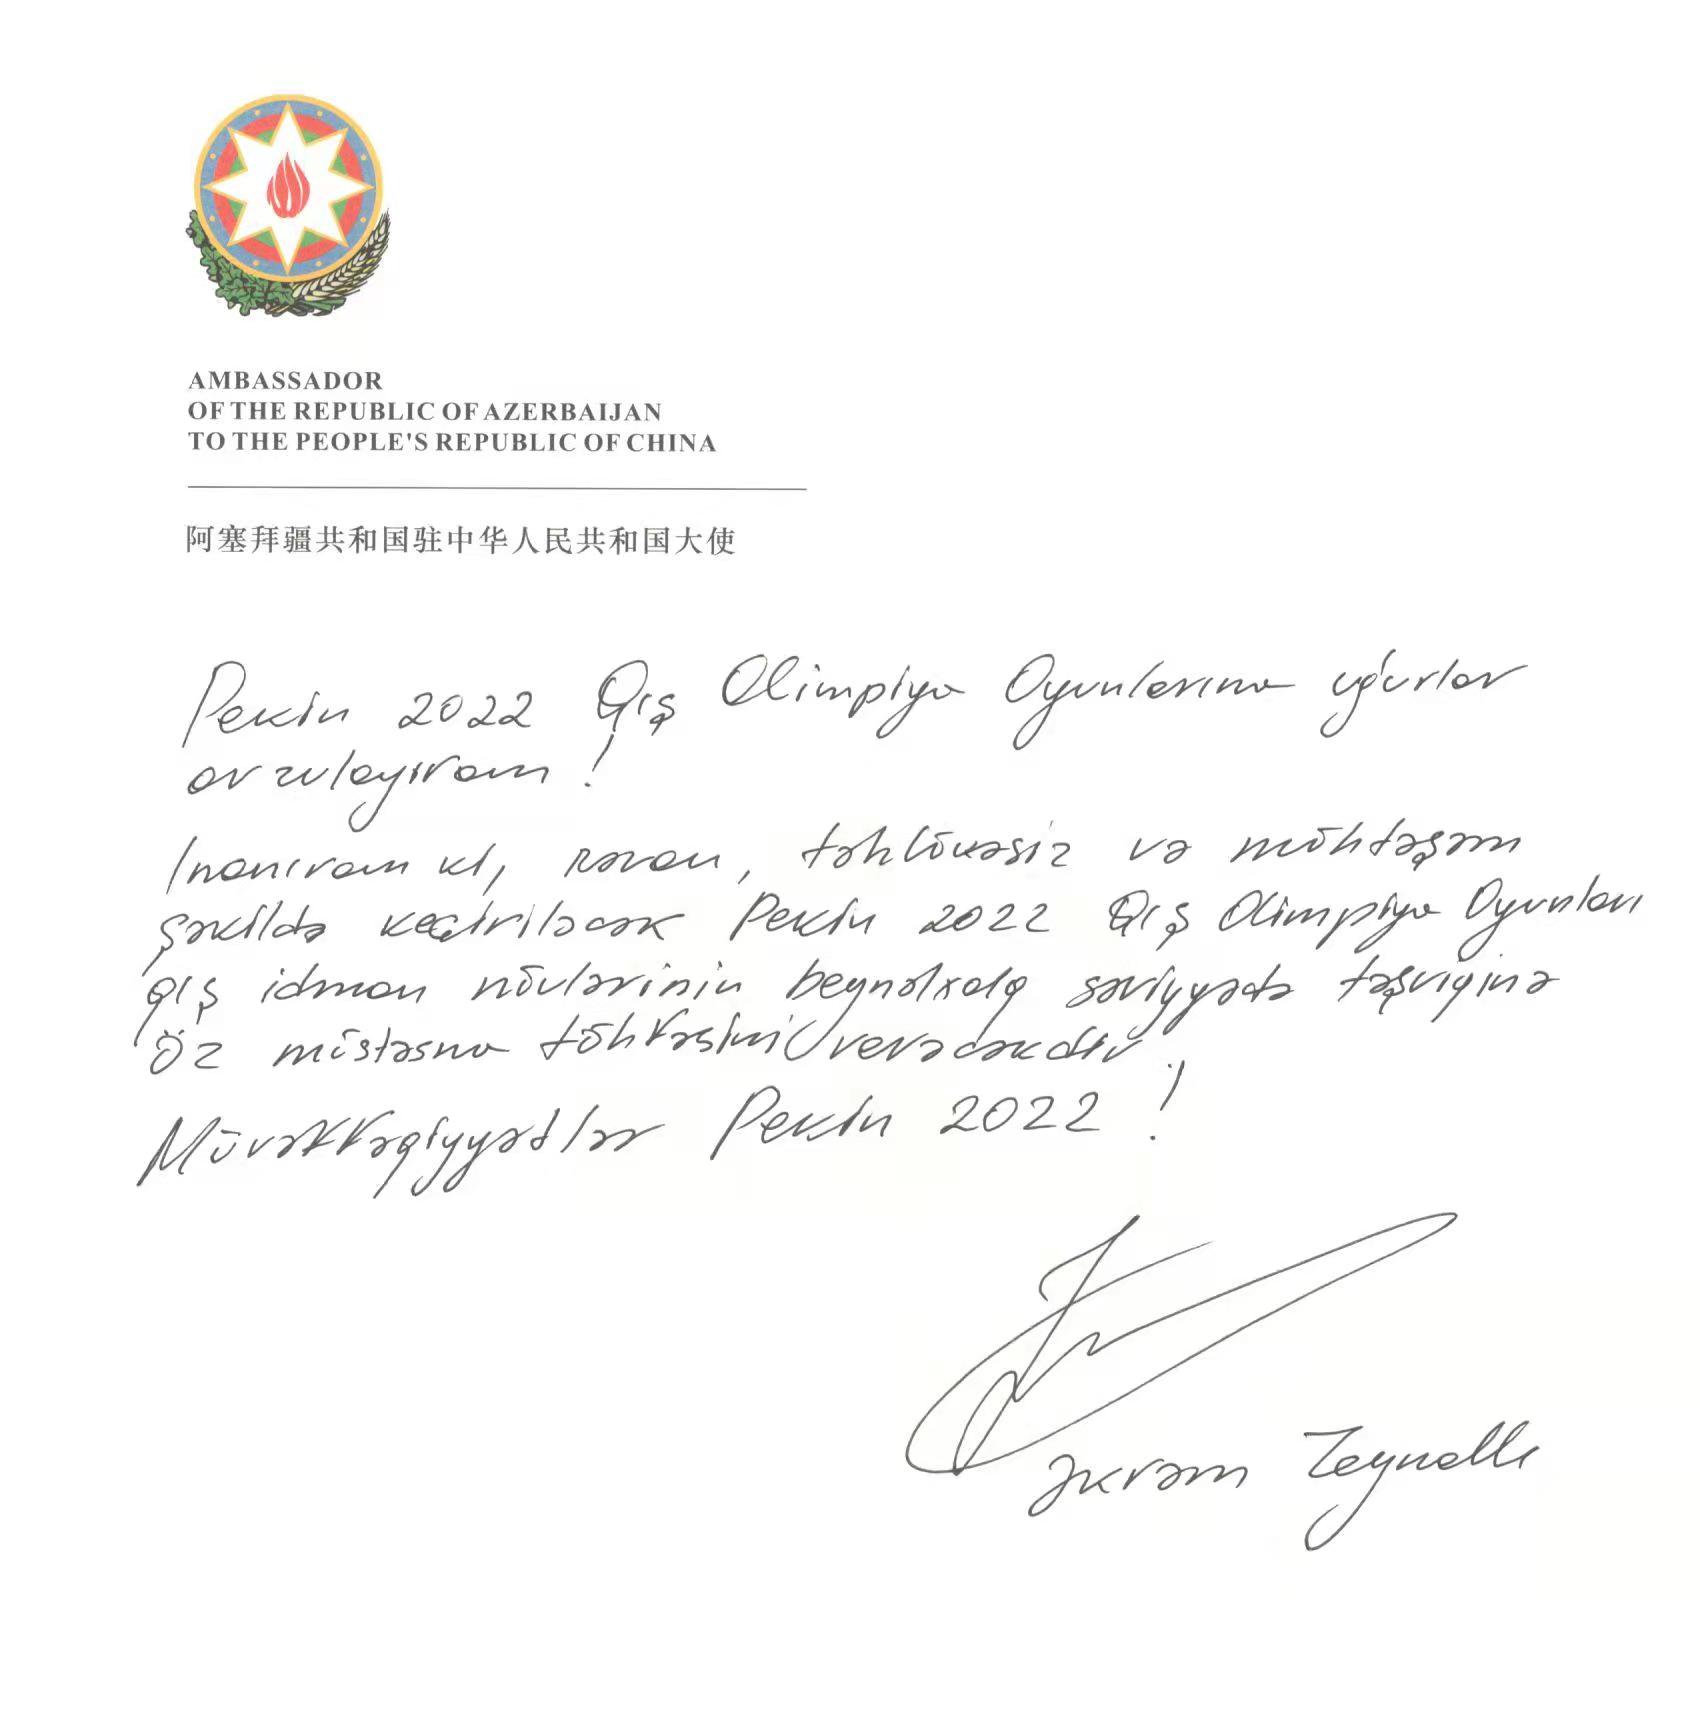 AMBASSADOR
OF THE REPUBLIC OF AZERBAIJAN
TO THE PEOPLE'S REPUBLIC OF CHINA
阿塞拜疆共和国驻中华人民共和国大使
Pekin 2022 Qış Olimpiya Oyunlarına uğurlar
arzulayıram!
Inanıram ki, rəvan, təhlükəsiz və möhtəşəm
şəkildə keçiriləcək Pekin 2022 Qış Olimpiya Oyunları
qış idman növlərinin beynəlxalq səviyyədə təşviqinə
öz müstəsna töhfəsini verəcəkdir.
Müvəffəqiyyətlər Pekin 2022!
Əkrəm Zeynallı